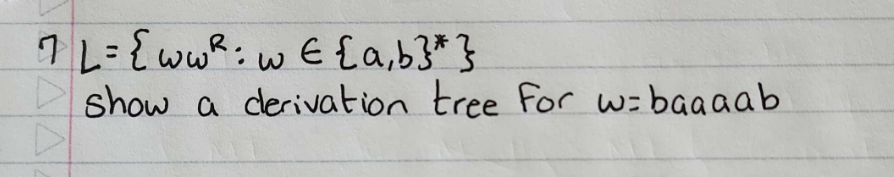 7 L={ww^R: w ∈ {a,b}*}
show a derivation tree for w=baaaab